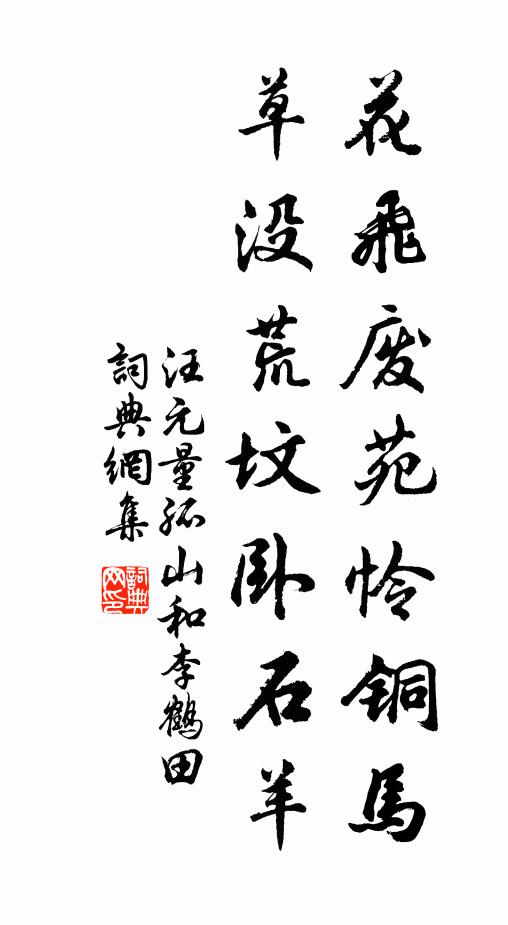 花飛废苑怜铜馬
草没荒坟卧石羊
汪元量孤山和李鶴田
詞典網集
詞典网印